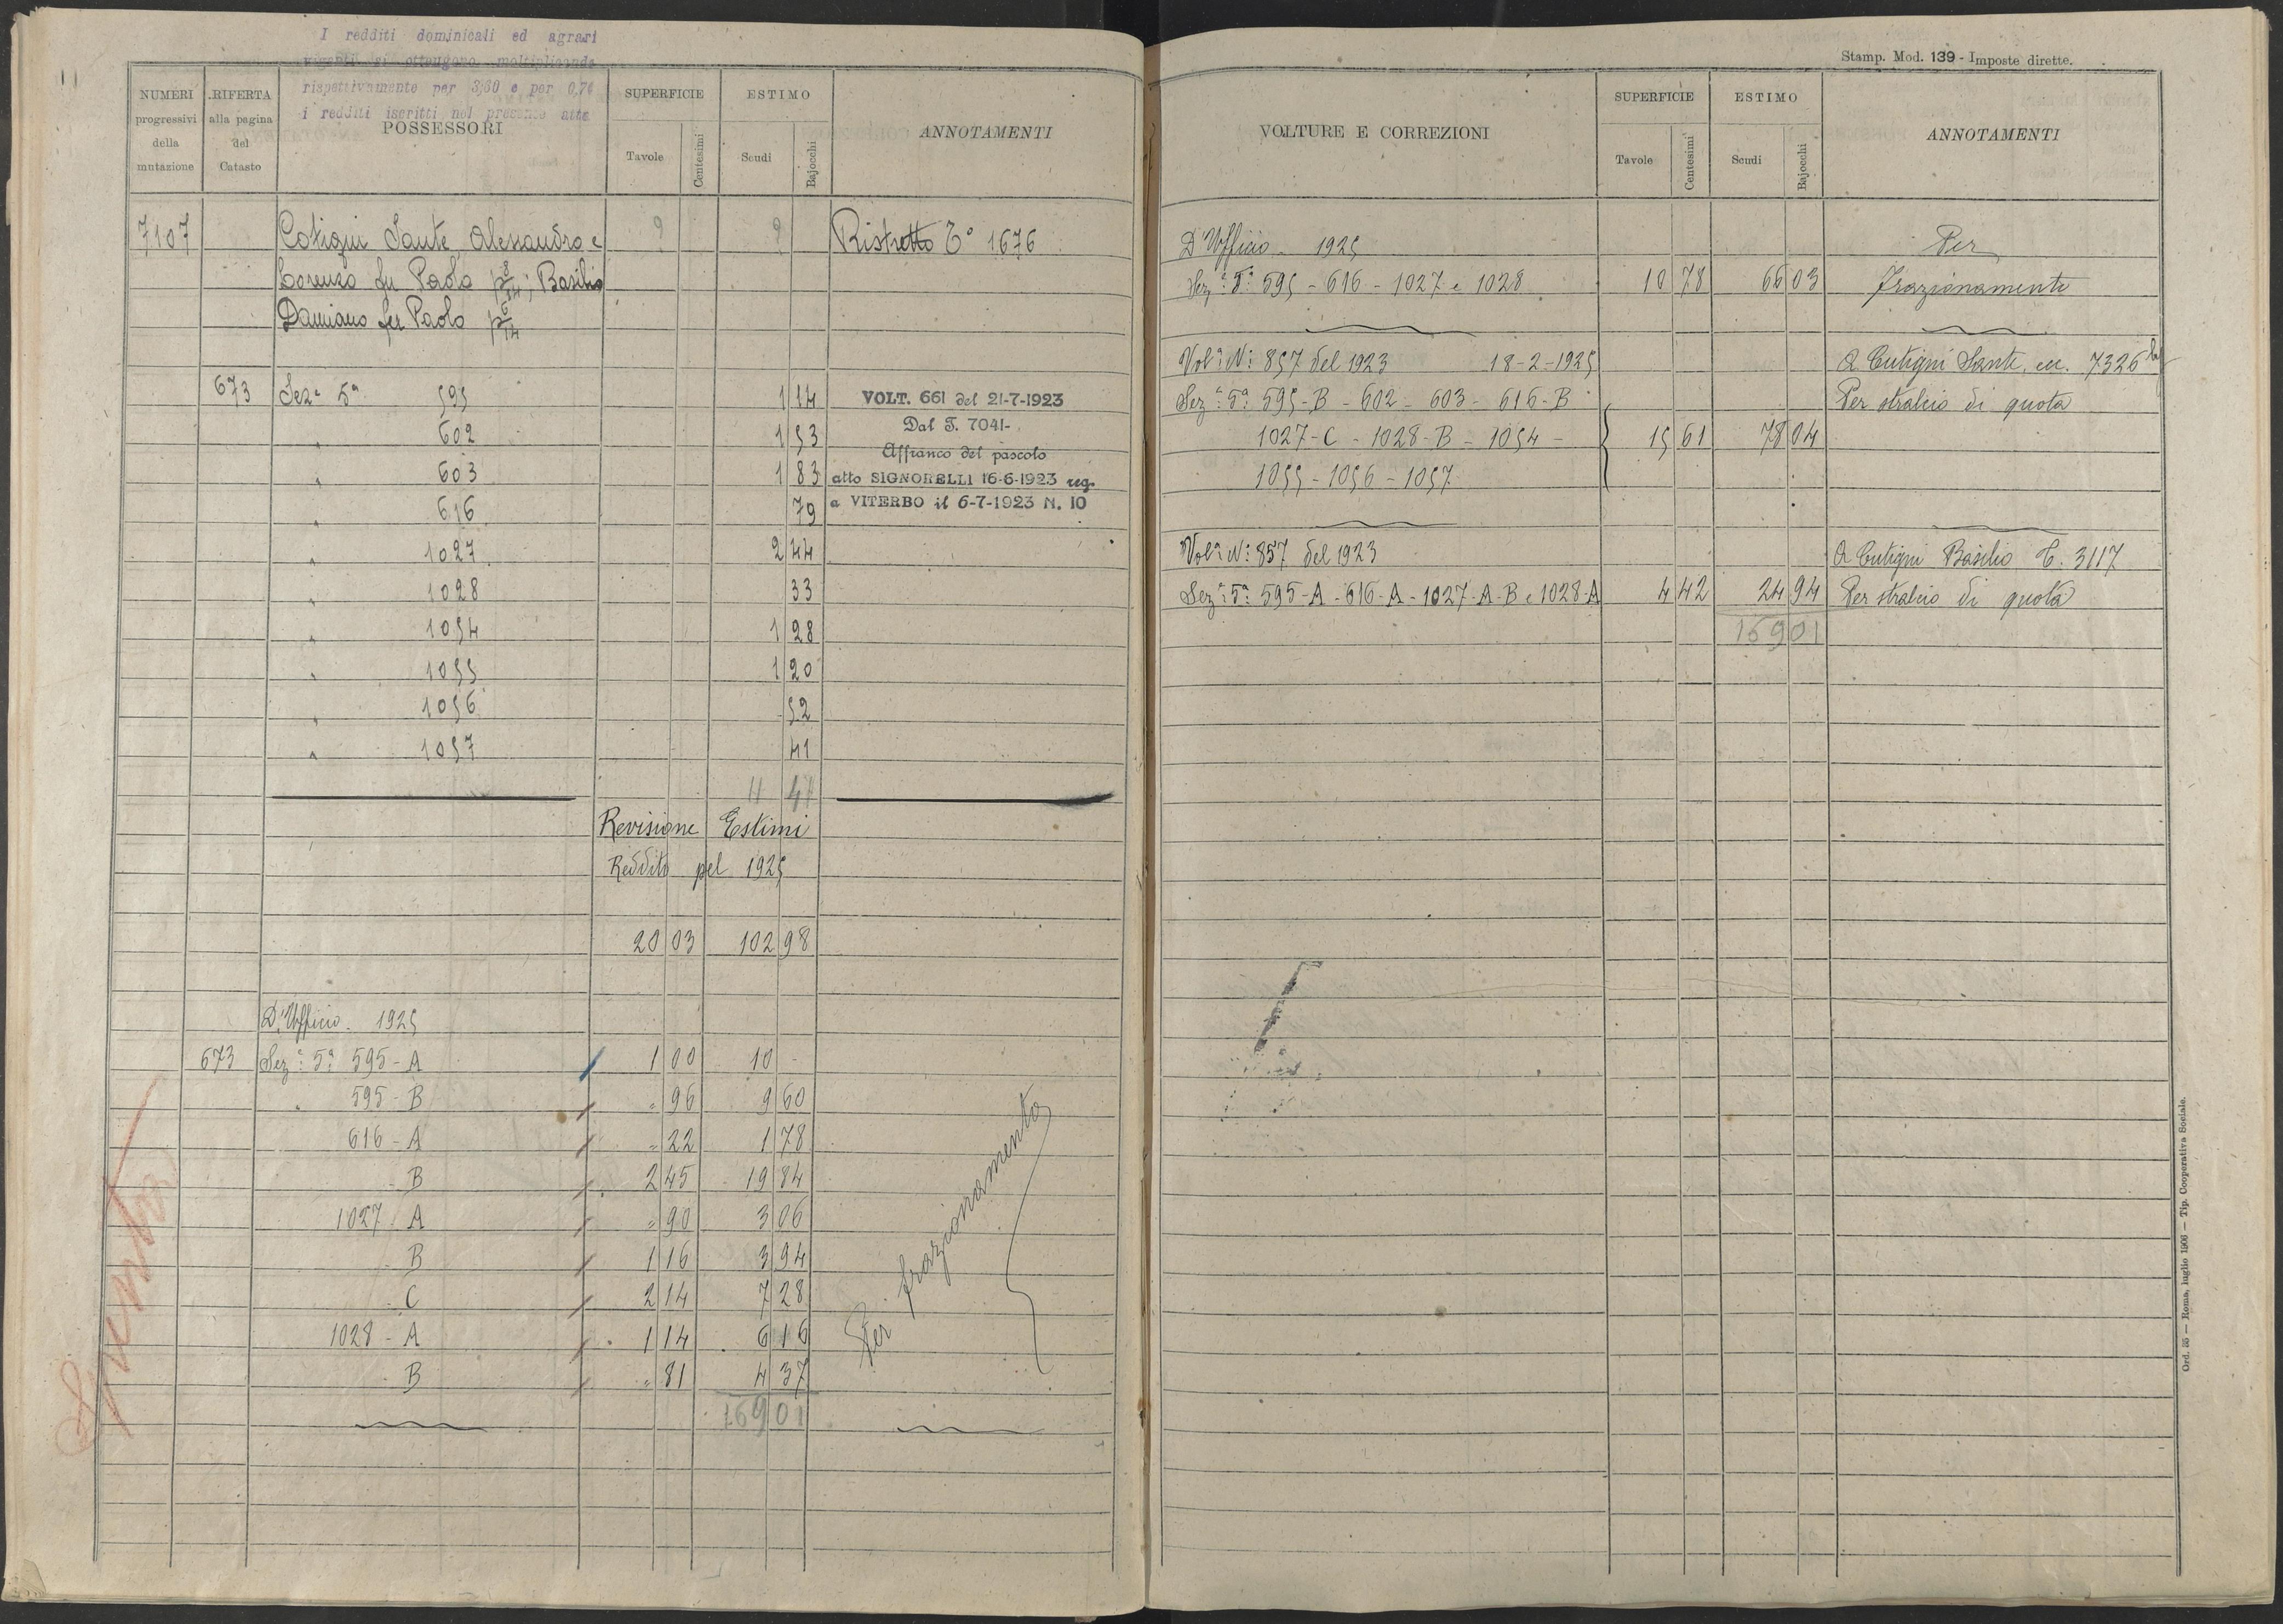 I redditi dominicali ed agrari
vigenti si ottengono moltiplicando
rispettivamente per 3,60 e per 0,76
i redditi iscritti nel presente atto
NUMERI progressivi della mutazione
RIFERTA alla pagina del Catasto
POSSESSORI
SUPERFICIE
Tavole
Centesimi
ESTIMO
Scudi
Bajocchi
ANNOTAMENTI
7107 Cotigni Sante, Alessandro e 9 9 Ristretto T° 1676
Lorenzo fu Paolo p 8/14; Basilio
Damiano fu Paolo p 6/14
673 Sez.e 5a 595 1 14
" 602 1 53
" 603 1 83
" 616 79
" 1027 2 44
" 1028 33
" 1054 1 28
" 1055 1 20
" 1056 52
" 1057 41
11 47
VOLT. 661 del 21-7-1923
Dal T. 7041-
Affranco del pascolo
atto SIGNORELLI 16-6-1923 reg.
a VITERBO il 6-7-1923 N. 10
Revisione Estimi
Reddito pel 1925
20 03 102 98
D'Ufficio. 1925
673 Sez.e 5a 595-A 1 00 10 -
" 595-B " 96 9 60
616-A " 22 1 78
B 2 45 19 84
1027 A " 90 3 06
B 1 16 3 94
C 2 14 7 28
1028-A 1 14 6 16
B " 81 4 37
169 01
Per frazionamento
Spenta
Stamp. Mod. 139 - Imposte dirette.
VOLTURE E CORREZIONI
SUPERFICIE
Tavole
Centesimi
ESTIMO
Scudi
Bajocchi
ANNOTAMENTI
D'Ufficio 1925 Per
Sez.e 5a 595 - 616 - 1027 e 1028 10 78 66 03 Frazionamento
Vol.a N: 857 del 1923 18-2-1925 A Cutigni Sante, ecc. 7326
Sez.e 5a 595-B - 602 - 603 - 616-B Per stralcio di quota
1027-C - 1028-B - 1054 - 15 61 78 04
1055 - 1056 - 1057
Vol.a N: 857 del 1923 A Cutigni Basilio T. 3117
Sez.e 5a 595-A - 616-A - 1027-A-B e 1028-A 4 42 24 94 Per stralcio di quota
169 01
Ord. 35 — Roma, luglio 1906 — Tip. Cooperativa Sociale.